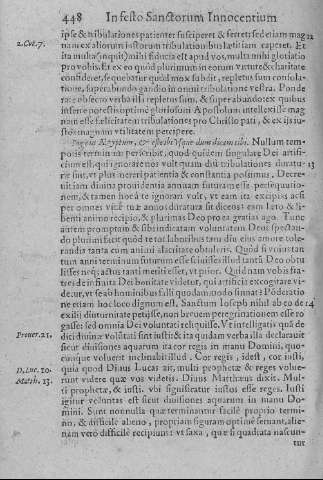 448 In festo Sanctorum Innocentium
ipse & tribulationes patienter susciperet & ferret; sed etiam mag 12
2. Cor. 7. nam ex aliorum istorum tribulationibus lætitiam caperet. Et
ita multa (inquit) mihi fiducia est apud vos, multa mihi gloriatio
pro vobis. Et ex eo quòd plurimùm in eorum virtute & charitate
confideret, sequebatur quod mox subdit, repletus sum consola-
tione, superabundo gaudio in omni tribulatione vestra. Ponde
rate obsecro verba illa repletus sum, & superabundo ex quibus
inferre poteris optimè gloriosum Apostolum intellexisse mag
nam esse fælicitatem tribulationes pro Christo pati, & ex iis ju-
stos magnam vtilitatem percipere.
Fuge in Ægyptum, & esto ibi Vsque dum dicam tibi. Nullum tem-
poris terminum perscribit, quod quidem singulare Dei artifi-
cium est, qui ignorare nos vult quamdiu tribulationes duratu- 13
ræ sint, vt plus mereri patientia & constantia possimus. Decre-
uerat
tiam diuina prouidentia annuam futuram esse persequutio-
nem, & tamen hora te ignorari vult, vt eam ita excipias ac si
per omnes vitæ tuæ annos duratura sit dicens: eam læto & li-
benti animo recipio, & plurimas Deo pro ea gratias ago. Tunc
autem promptam & sibi indicatam voluntatem Deus spectan-
do plurimi facit quòd te tot laboribus tam diu eius amore tole-
randis tanta cum animi alacritate obtuleris. Quòd si voluntar
tum anni terminum futurum esse sciuisses illud tantũ Deo obtu
lisses neque actus tanti meriti esset, vt prior. Quid nam vobis fra-
tres de infinita Dei bonitate videtur, qui artificia excogitare vi-
detur, vt se ab hominibus falli quodammodo sinat? Põderatio
ne etiam hoc loco dignum est, Sanctum Ioseph nihil ab eo de 14
exilii diuturnitate petiisse, non breuem peregrinationem esse ro
gasse: sed omnia Dei voluntati reliquisse. Vt intelligatis quã de
Prouer. 21. dici diuinæ volũtati sint iusti: & ita quædam verba illa declarauit
sicut diuisiones aquarum ita cor regis in manu Domini, quo-
cunque voluerit inclinabit illud. Cor regis, idest, cor iusti,
D. Luc. 10. quia quod Diuus Lucas ait, multi prophetæ & reges volue-
Matth. 13. runt videre quæ vos videtis. Diuus Matthæus dixit. Multi
prophetæ, & iusti. vbi significatur iustos esse reges. Iusti
igitur voluntas est sicut diuisiones aquarum in manu Do-
mini. Sunt nonnulla quæ terminantur facilè proprio termi-
no, & difficilè alieno, propriam figuram optimè seruant, alie-
nam verò difficilè recipiunt: vt saxa, quæ si quadrata nascun-
tur